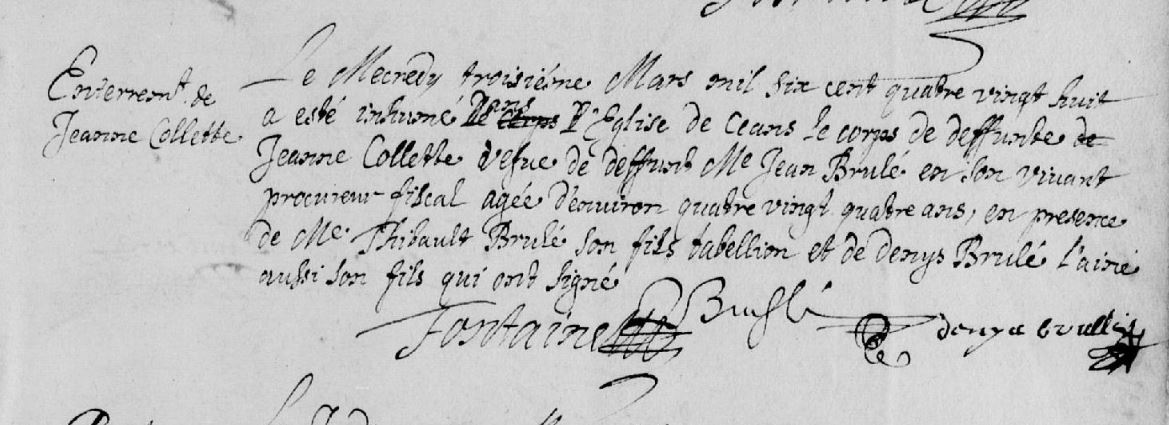 Enterremt. de
Jeanne Collette
Le Mecredy troisiéme Mars mil six cent quatre vingt huit
a esté inhumé le corps Dans l'Eglise de Ceans le corps de deffunte de
Jeanne Collette vefue de deffunt Me Jean Brulé en son viuant
procureur fiscal agée d'enuiron quatre vingt quatre ans, en presence
de Me. Thibault Brulé son fils tabellion et de denys Brulé l'ainé
aussi son fils qui ont signé
Fontaine Bruslé denys brullé